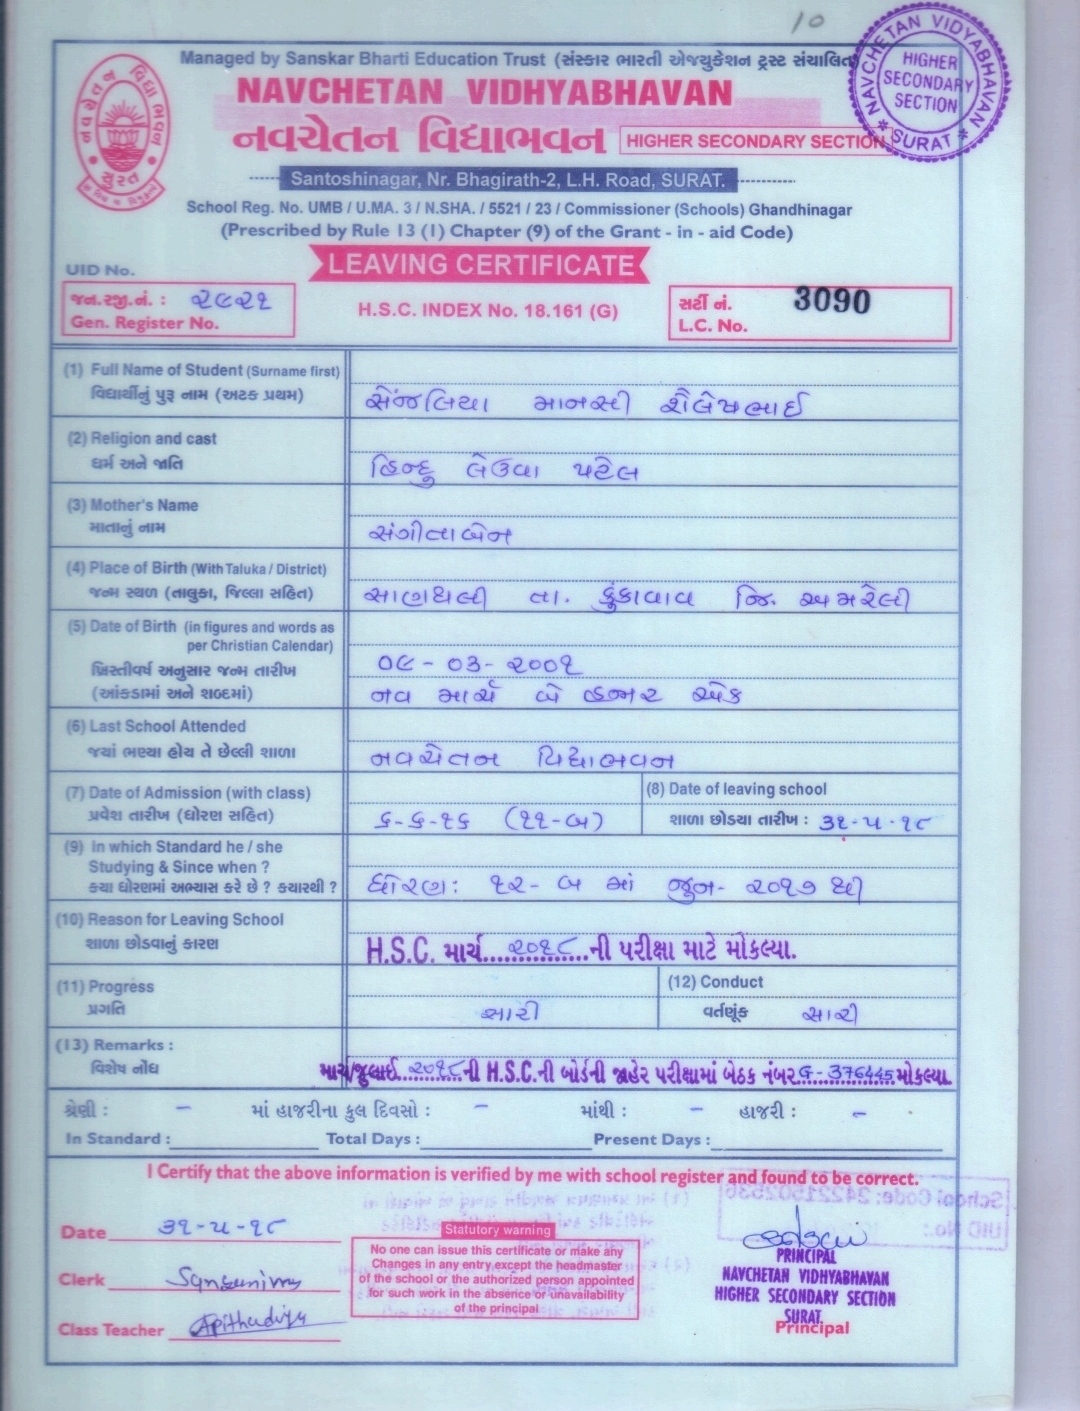 10
Managed by Sanskar Bharti Education Trust (સંસ્કાર ભારતી એજ્યુકેશન ટ્રસ્ટ સંચાલિત)
NAVCHETAN VIDHYABHAVAN
નવચેતન વિદ્યાભવન HIGHER SECONDARY SECTION
NAVCHETAN VIDYABHAVAN
HIGHER SECONDARY SECTION
* SURAT *
નવચેતન વિદ્યા ભવન
સુરત
Santoshinagar, Nr. Bhagirath-2, L.H. Road, SURAT.
School Reg. No. UMB / U.MA. 3 / N.SHA. / 5521 / 23 / Commissioner (Schools) Ghandhinagar
(Prescribed by Rule 13 (1) Chapter (9) of the Grant - in - aid Code)
UID No.
LEAVING CERTIFICATE
જન.રજી.નં. : ૨૯૨૧
Gen. Register No.
H.S.C. INDEX No. 18.161 (G)
સર્ટી નં. 3090
L.C. No.
(1) Full Name of Student (Surname first)
વિદ્યાર્થીનું પુરૂ નામ (અટક પ્રથમ) સેંજલિયા માનસી શૈલેષભાઈ
(2) Religion and cast
ધર્મ અને જાતિ હિન્દુ લેઉવા પટેલ
(3) Mother's Name
માતાનું નામ સંગીતાબેન
(4) Place of Birth (With Taluka / District)
જન્મ સ્થળ (તાલુકા, જિલ્લા સહિત) સાણથલી તા. કુંકાવાવ જિ. અમરેલી
(5) Date of Birth (in figures and words as
per Christian Calendar)
ખ્રિસ્તીવર્ષ અનુસાર જન્મ તારીખ ૦૯ - ૦૩ - ૨૦૦૧
(આંકડામાં અને શબ્દમાં) નવ માર્ચ બે હજાર એક
(6) Last School Attended
જ્યાં ભણ્યા હોય તે છેલ્લી શાળા નવચેતન વિદ્યાભવન
(7) Date of Admission (with class) (8) Date of leaving school
પ્રવેશ તારીખ (ધોરણ સહિત) ૬-૬-૧૬ (૧૧-બ) શાળા છોડયા તારીખ : ૩૧-૫-૧૮
(9) In which Standard he / she
Studying & Since when ?
ક્યા ધોરણમાં અભ્યાસ કરે છે ? ક્યારથી ? ધોરણ: ૧૨-બ માં જૂન- ૨૦૧૭ થી
(10) Reason for Leaving School
શાળા છોડવાનું કારણ H.S.C. માર્ચ ૨૦૧૮ ની પરીક્ષા માટે મોકલ્યા.
(11) Progress (12) Conduct
પ્રગતિ સારી વર્તણૂંક સારી
(13) Remarks :
વિશેષ નોંધ માર્ચ/જુલાઈ ૨૦૧૮ ની H.S.C.ની બોર્ડની જાહેર પરીક્ષામાં બેઠક નંબર G-376445 મોકલ્યા.
શ્રેણી : - માં હાજરીના કુલ દિવસો : - માંથી : - હાજરી : -
In Standard : Total Days : Present Days :
I Certify that the above information is verified by me with school register and found to be correct.
School Code: 24221502536
UID No.:
Date ૩૧-૫-૧૮
Statutory warning
No one can issue this certificate or make any
Changes in any entry except the headmaster
of the school or the authorized person appointed
for such work in the absence or unavailability
of the principal
Clerk
Class Teacher
PRINCIPAL
NAVCHETAN VIDHYABHAVAN
HIGHER SECONDARY SECTION
SURAT.
Principal